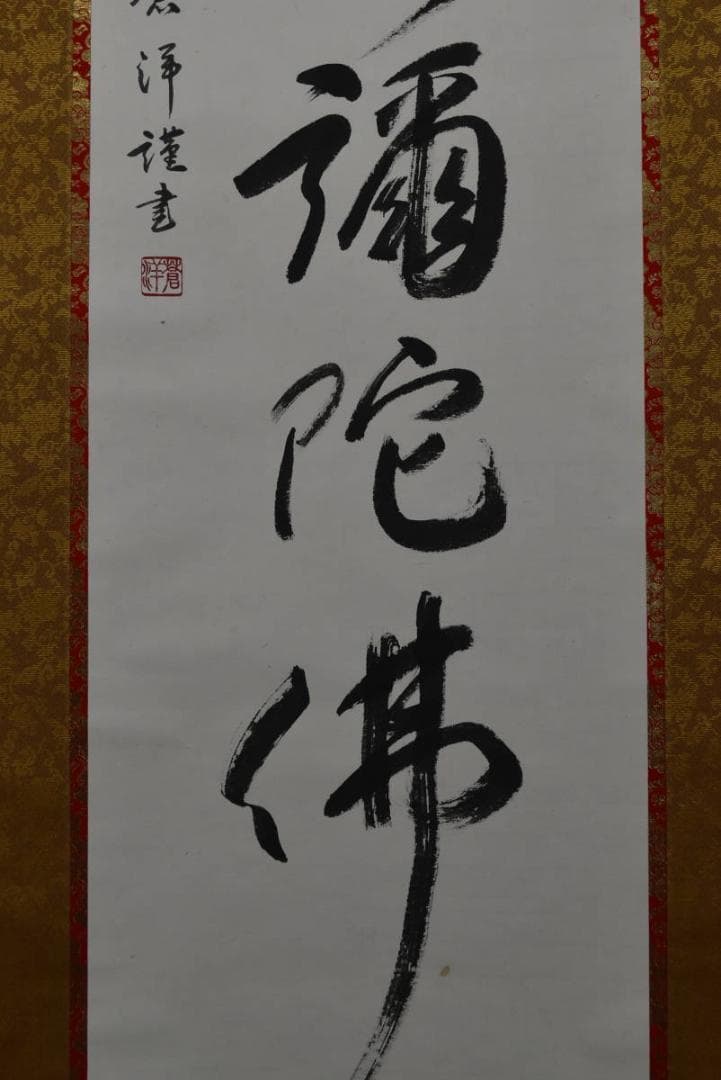 彌陀佛
洋謹書
蒼洋